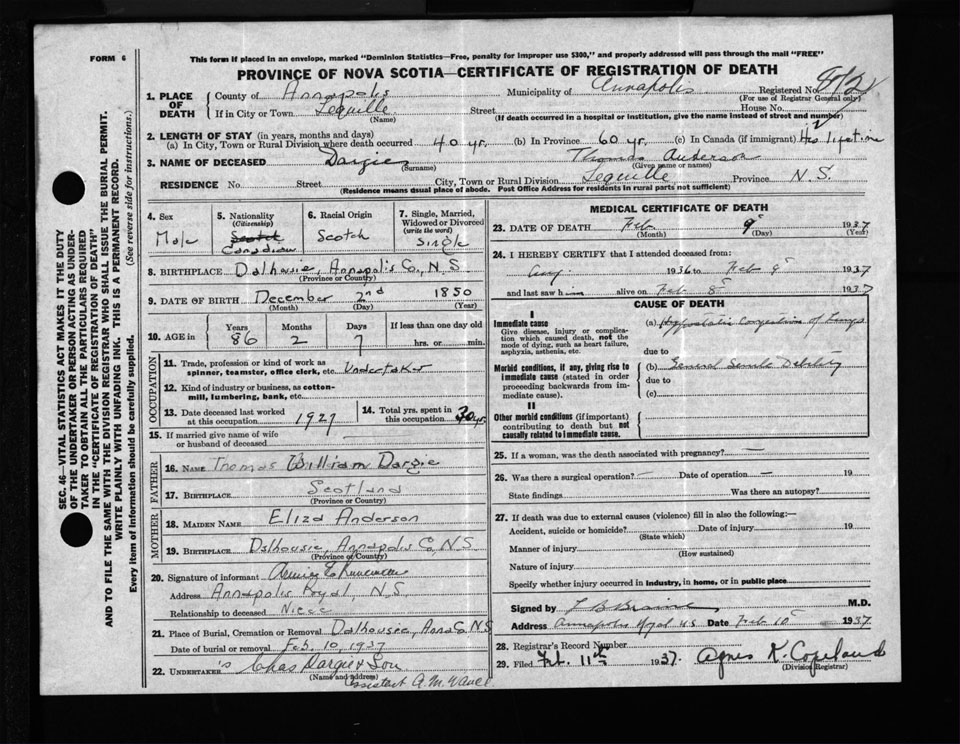 FORM 6
This form if placed in an envelope, marked "Dominion Statistics—Free, penalty for improper use $300," and properly addressed will pass through the mail "FREE"
PROVINCE OF NOVA SCOTIA—CERTIFICATE OF REGISTRATION OF DEATH
SEC. 46—VITAL STATISTICS ACT MAKES IT THE DUTY
OF THE UNDERTAKER OR PERSON ACTING AS UNDER-
TAKER TO OBTAIN ALL THE PARTICULARS REQUIRED
IN THE "CERTIFICATE OF REGISTRATION OF DEATH"
AND TO FILE THE SAME WITH THE DIVISION REGISTRAR WHO SHALL ISSUE THE BURIAL PERMIT.
WRITE PLAINLY WITH UNFADING INK. THIS IS A PERMANENT RECORD.
Every item of information should be carefully supplied. (See reverse side for instructions.)
1. PLACE OF DEATH
County of Annapolis Municipality of Annapolis Registered No.
(For use of Registrar General only)
If in City or Town Lequille Street House No.
(Name) (If death occurred in a hospital or institution, give the name instead of street and number)
2. LENGTH OF STAY (in years, months and days)
(a) In City, Town or Rural Division where death occurred 40 yr. (b) In Province 60 yr. (c) In Canada (if immigrant) His lifetime
3. NAME OF DECEASED Dargie Thomas Anderson
(Surname) (Given name or names)
RESIDENCE No. Street City, Town or Rural Division Lequille Province N.S.
(Residence means usual place of abode. Post Office Address for residents in rural parts not sufficient)
4. Sex Male
5. Nationality (Citizenship) Scotch Canadian
6. Racial Origin Scotch
7. Single, Married, Widowed or Divorced (write the word) Single
8. BIRTHPLACE Dalhousie, Annapolis Co., N.S
(Province or Country)
9. DATE OF BIRTH December 2nd 1850
(Month) (Day) (Year)
10. AGE in Years 86 Months 2 Days 7 If less than one day old hrs. or min.
OCCUPATION
11. Trade, profession or kind of work as spinner, teamster, office clerk, etc. Undertaker
12. Kind of industry or business, as cotton-mill, lumbering, bank, etc.
13. Date deceased last worked at this occupation 1927
14. Total yrs. spent in this occupation 30 yr.
15. If married give name of wife or husband of deceased
FATHER
16. NAME Thomas William Dargie
17. BIRTHPLACE Scotland
(Province or Country)
MOTHER
18. MAIDEN NAME Eliza Anderson
19. BIRTHPLACE Dalhousie, Annapolis Co, N.S
(Province or Country)
20. Signature of informant
Address Annapolis Royal, N.S.
Relationship to deceased Niece
21. Place of Burial, Cremation or Removal Dalhousie, Anna Co. N.S
Date of burial or removal Feb. 10, 1937
22. UNDERTAKER 's Chas Dargie & Son
(Name and address)
Assistant A. M.
MEDICAL CERTIFICATE OF DEATH
23. DATE OF DEATH Feb 9 1937
(Month) (Day) (Year)
24. I HEREBY CERTIFY that I attended deceased from:
Aug. 1936 to Feb 9 1937
and last saw him alive on Feb 8 1937
CAUSE OF DEATH
I
Immediate cause
Give disease, injury or complication which caused death, not the mode of dying, such as heart failure, asphyxia, asthenia, etc.
(a) Hypostatic Congestion of Lungs
due to
Morbid conditions, if any, giving rise to immediate cause (stated in order proceeding backwards from immediate cause).
(b) General Senile Debility
due to
(c)
II
Other morbid conditions (if important) contributing to death but not causally related to immediate cause.
25. If a woman, was the death associated with pregnancy? —
26. Was there a surgical operation? — Date of operation — 19
State findings Was there an autopsy?
27. If death was due to external causes (violence) fill in also the following:—
Accident, suicide or homicide? Date of injury 19
(State which)
Manner of injury
(How sustained)
Nature of injury
Specify whether injury occurred in industry, in home, or in public place
Signed by L B Braine M.D.
Address Annapolis Royal N.S Date Feb 10 1937
28. Registrar's Record Number
29. Filed Feb. 11th 1937. Agnes K. Copeland
(Division Registrar)